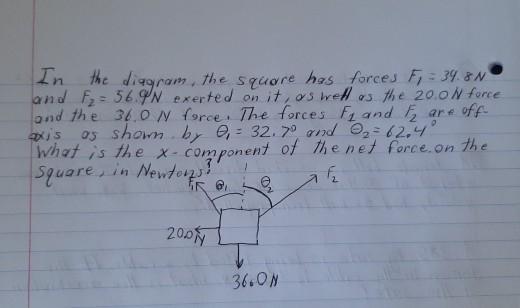 In the diagram, the square has forces F₁ = 34.8N
and F₂ = 56.9N exerted on it, as well as the 20.0N force
and the 36.0 N force. The forces F₁ and F₂ are off-
axis as shown by θ₁ = 32.7° and θ₂ = 62.4°
What is the x-component of the net force on the
square, in Newtons?
F₁ θ₁ θ₂ F₂
20.0N
36.0N